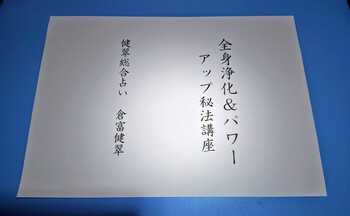 全身浄化&パワー
アップ秘法講座
健翠総合占い 倉富健翠